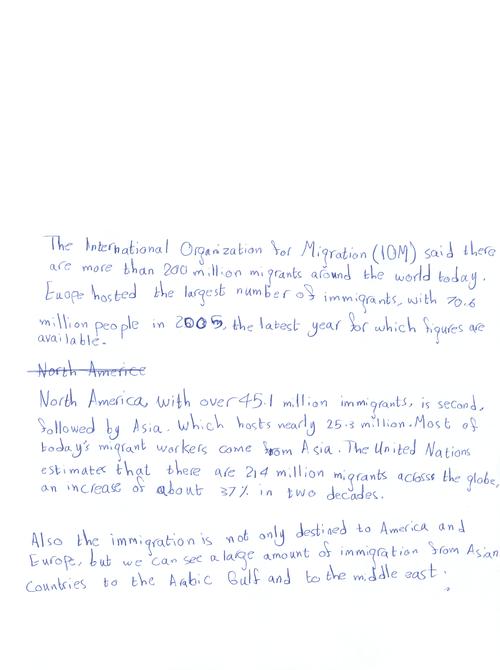 The International Organization for Migration (IOM) said there
are more than 200 million migrants around the world today.
Euope hosted the largest number of immigrants, with 70.6
million people in 2005, the latest year for which figures are
available.
North America
North America, with over 45.1 million immigrants, is second,
followed by Asia. Which hosts nearly 25.3 million. Most of
today's migrant workers come from Asia. The United Nations
estimates that there are 214 million migrants across the globe,
an increase of about 37% in two decades.
Also the immigration is not only destined to America and
Europe, but we can see a large amount of immigration from Asian
Countries to the Arabic Gulf and to the middle east.